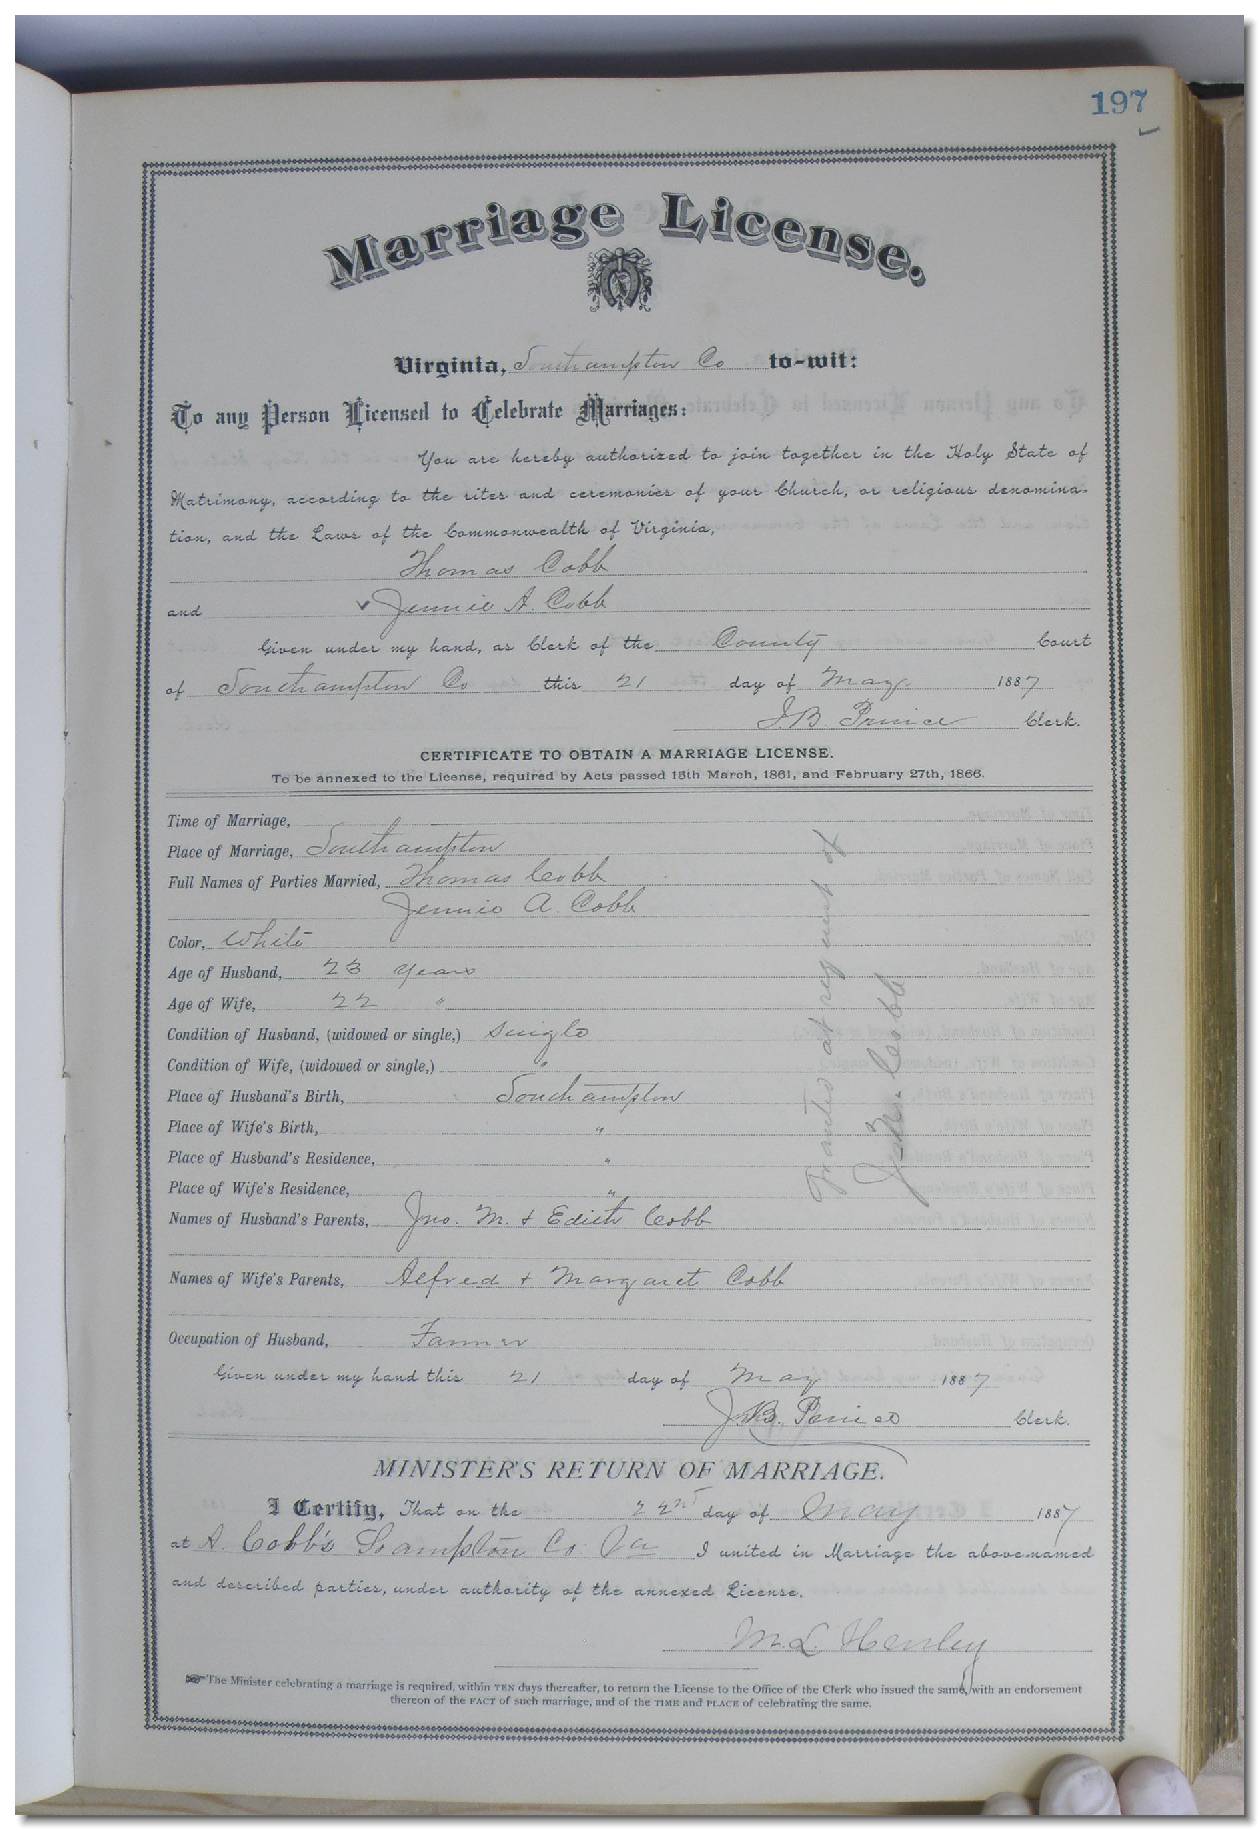 197
Marriage License.
Virginia, Southampton Co to-wit:
To any Person Licensed to Celebrate Marriages:
You are hereby authorized to join together in the Holy State of
Matrimony, according to the rites and ceremonies of your Church, or religious denomina-
tion, and the Laws of the Commonwealth of Virginia,
Thomas Cobb
and Jennie A. Cobb
Given under my hand, as Clerk of the County Court
of Southampton Co this 21 day of May 1887
J.B. Prince Clerk.
CERTIFICATE TO OBTAIN A MARRIAGE LICENSE.
To be annexed to the License, required by Acts passed 15th March, 1861, and February 27th, 1866.
Time of Marriage,
Place of Marriage, Southampton
Full Names of Parties Married, Thomas Cobb
Jennie A. Cobb
Color, White
Age of Husband, 23 years
Age of Wife, 22 "
Condition of Husband, (widowed or single,) Single
Condition of Wife, (widowed or single,) "
Place of Husband's Birth, Southampton
Place of Wife's Birth, "
Place of Husband's Residence, "
Place of Wife's Residence, "
Names of Husband's Parents, Jno. M. & Edieth Cobb
Names of Wife's Parents, Alfred & Margaret Cobb
Occupation of Husband, Farmer
Given under my hand this 21 day of May 1887
J.B. Prince Clerk.
Granted at request of
Cobb
MINISTER'S RETURN OF MARRIAGE.
I Certify, That on the 22nd day of May 1887
at A. Cobb's S.ampton Co. Va I united in Marriage the above-named
and described parties, under authority of the annexed License.
M.L. Hurley
The Minister celebrating a marriage is required, within TEN days thereafter, to return the License to the Office of the Clerk who issued the same, with an endorsement
thereon of the FACT of such marriage, and of the TIME and PLACE of celebrating the same.